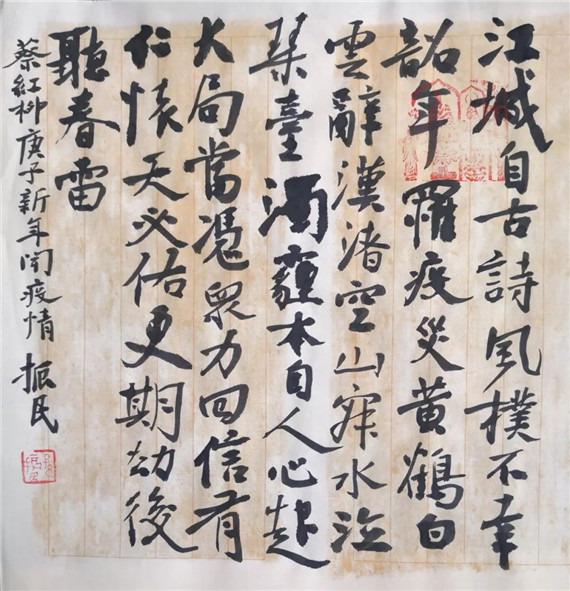 江城自古詩風樸不幸
韶年罹疫災黄鶴白
雲辭漢渚空山寂水泣
琴臺濁霾本自人心起
大局當憑衆力回信有
仁懷天必佑更期劫後
聽春雷
蔡紅柳庚子新年聞疫情 振民